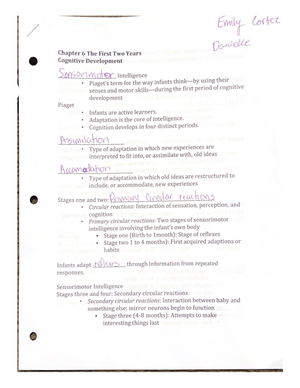 Emily Carter
Danielle
Chapter 6 The First Two Years
Cognitive Development
Sensorimotor Intelligence
• Piaget's term for the way infants think—by using their
senses and motor skills—during the first period of cognitive
development
Piaget
• Infants are active learners.
• Adaptation is the core of intelligence.
• Cognition develops in four distinct periods.
Assimilation
• Type of adaptation in which new experiences are
interpreted to fit into, or assimilate with, old ideas
Accomodation
• Type of adaptation in which old ideas are restructured to
include, or accommodate, new experiences
Stages one and two: Primary Circular reactions
• Circular reactions: Interaction of sensation, perception, and
cognition
• Primary circular reactions: Two stages of sensorimotor
intelligence involving the infant's own body
• Stage one (Birth to 1month): Stage of reflexes
• Stage two 1 to 4 months): First acquired adaptations or
habits
Infants adapt reflexes through information from repeated
responses.
Sensorimotor Intelligence
Stages three and four: Secondary circular reactions
• Secondary circular reactions: Interaction between baby and
something else; mirror neurons begin to function
• Stage three (4-8 months): Attempts to make
interesting things last